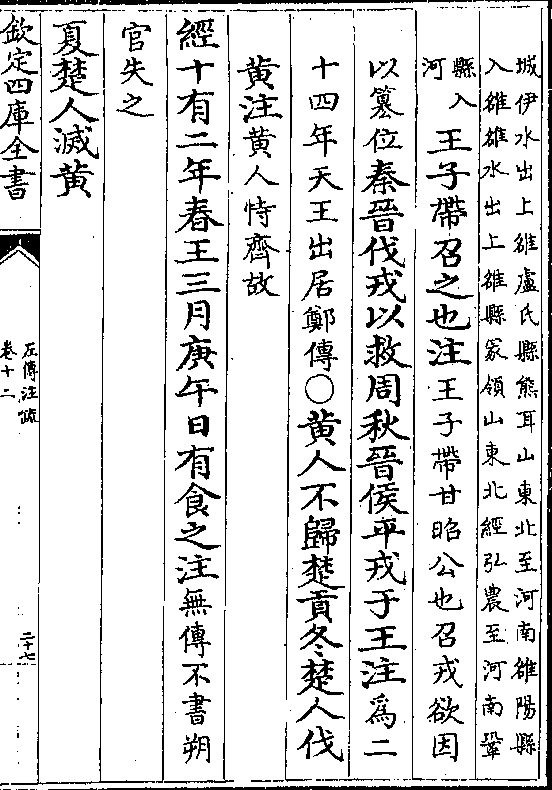 城伊水出上雒盧氏縣熊耳山東北至河南雒陽縣
入雒雒水出上雒縣冡領山東北經弘農至河南鞏
縣入
河
王子帶召之也注王子帶甘昭公也召戎欲因
以篡位秦晉伐戎以救周秋晉侯平戎于王注爲二
十四年天王出居鄭傳〇黄人不歸楚貢冬楚人伐
黄注黄人恃齊故
經十有二年春王三月庚午日有食之注無傳不書朔
官失之
夏楚人滅黄
欽定四庫全書
左傳注疏
卷十二
二十七